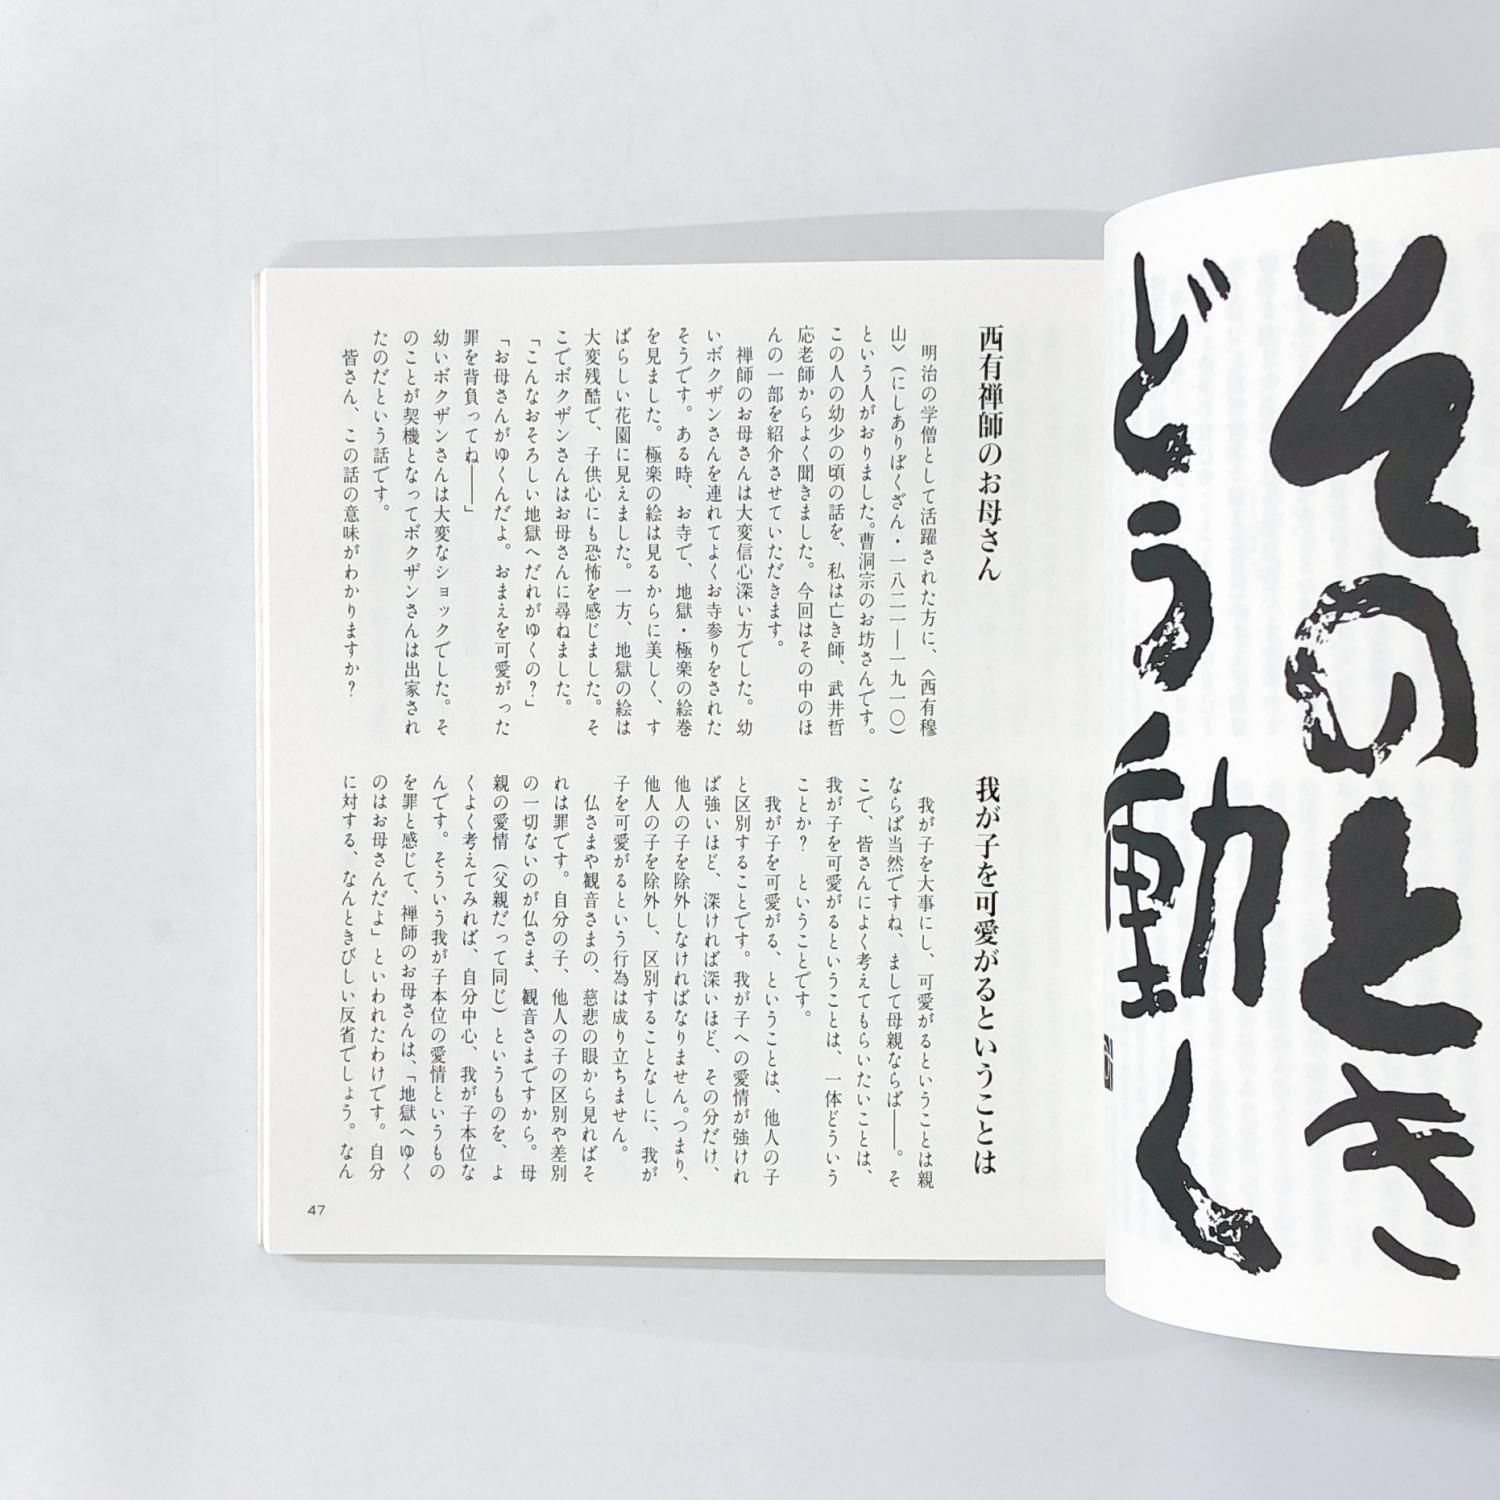 そのとき
どう動く
西有禅師のお母さん
明治の学僧として活躍された方に、〈西有穆
山〉（にしありぼくざん・一八二一―一九一〇）
という人がおりました。曹洞宗のお坊さんです。
この人の幼少の頃の話を、私は亡き師、武井哲
応老師からよく聞きました。今回はその中のほ
んの一部を紹介させていただきます。
禅師のお母さんは大変信心深い方でした。幼
いボクザンさんを連れてよくお寺参りをされた
そうです。ある時、お寺で、地獄・極楽の絵巻
を見ました。極楽の絵は見るからに美しく、す
ばらしい花園に見えました。一方、地獄の絵は
大変残酷で、子供心にも恐怖を感じました。そ
こでボクザンさんはお母さんに尋ねました。
「こんなおそろしい地獄へだれがゆくの？」
「お母さんがゆくんだよ。おまえを可愛がった
罪を背負ってね――」
幼いボクザンさんは大変なショックでした。そ
のことが契機となってボクザンさんは出家され
たのだという話です。
皆さん、この話の意味がわかりますか？
我が子を可愛がるということは
我が子を大事にし、可愛がるということは親
ならば当然ですね、まして母親ならば――。そ
こで、皆さんによく考えてもらいたいことは、
我が子を可愛がるということは、一体どういう
ことか？　ということです。
我が子を可愛がる、ということは、他人の子
と区別することです。我が子への愛情が強けれ
ば強いほど、深ければ深いほど、その分だけ、
他人の子を除外しなければなりません。つまり、
他人の子を除外し、区別することなしに、我が
子を可愛がるという行為は成り立ちません。
仏さまや観音さまの、慈悲の眼から見ればそ
れは罪です。自分の子、他人の子の区別や差別
の一切ないのが仏さま、観音さまですから。母
親の愛情（父親だって同じ）というものを、よ
くよく考えてみれば、自分中心、我が子本位な
んです。そういう我が子本位の愛情というもの
を罪と感じて、禅師のお母さんは、「地獄へゆく
のはお母さんだよ」といわれたわけです。自分
に対する、なんときびしい反省でしょう。なん
47